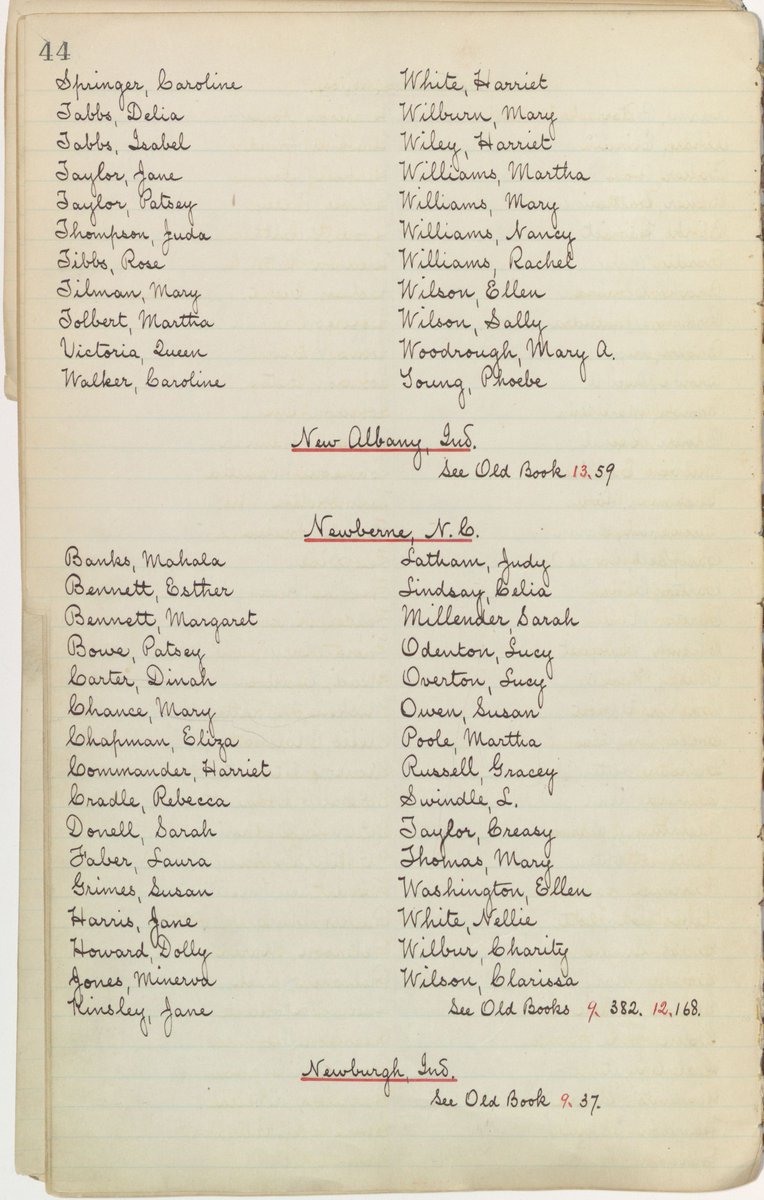 44
Springer, Caroline
Tabbs, Delia
Tabbs, Isabel
Taylor, Jane
Taylor, Patsey
Thompson, Juda
Tibbs, Rose
Tilman, Mary
Tolbert, Martha
Victoria, Queen
Walker, Caroline
White, Harriet
Wilburn, Mary
Wiley, Harriet
Williams, Martha
Williams, Mary
Williams, Nancy
Williams, Rachel
Wilson, Ellen
Wilson, Sally
Woodrough, Mary A.
Young, Phoebe
New Albany, Ind.
See Old Book 13.59
Newberne, N.C.
Banks, Mahala
Bennett, Esther
Bennett, Margaret
Bowe, Patsey
Carter, Dinah
Chance, Mary
Chapman, Eliza
Commander, Harriet
Cradle, Rebecca
Donell, Sarah
Faber, Laura
Grimes, Susan
Harris, Jane
Howard, Dolly
Jones, Minerva
Kinsley, Jane
Latham, Judy
Lindsay, Celia
Millender, Sarah
Odenton, Lucy
Overton, Lucy
Owen, Susan
Poole, Martha
Russell, Gracey
Swindle, L.
Taylor, Creasy
Thomas, Mary
Washington, Ellen
White, Nellie
Wilbur, Charity
Wilson, Clarissa
See Old Books 9. 382. 12.168.
Newburgh, Ind.
See Old Book 9. 37.